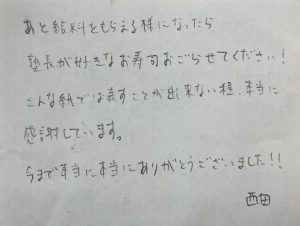 あと給料をもらえる様になったら
塾長が好きなお寿司おごらせてください!
こんな紙では表すことが出来ない程、本当に
感謝しています。
今まで本当に本当にありがとうございました!!
西田